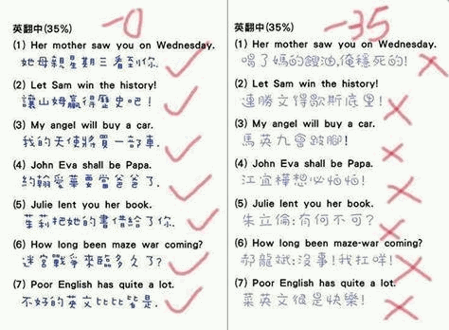 英翻中(35%)
-0
(1) Her mother saw you on Wednesday.
她母親星期三看到你.
(2) Let Sam win the history!
讓山姆贏得歷史吧!
(3) My angel will buy a car.
我的天使將買一部車.
(4) John Eva shall be Papa.
約翰愛華要當爸爸了.
(5) Julie lent you her book.
茱莉把她的書借給了你.
(6) How long been maze war coming?
迷宮戰爭來臨多久了?
(7) Poor English has quite a lot.
不好的英文比比皆是.
英翻中(35%)
-35
(1) Her mother saw you on Wednesday.
喝了媽的餿油,俺穩死的!
(2) Let Sam win the history!
連勝文得歇斯底里!
(3) My angel will buy a car.
馬英九會跛腳!
(4) John Eva shall be Papa.
江宜樺想必怕怕!
(5) Julie lent you her book.
朱立倫:有何不可?
(6) How long been maze-war coming?
郝龍斌:沒事!我扛咩!
(7) Poor English has quite a lot.
菜英文很是快樂!